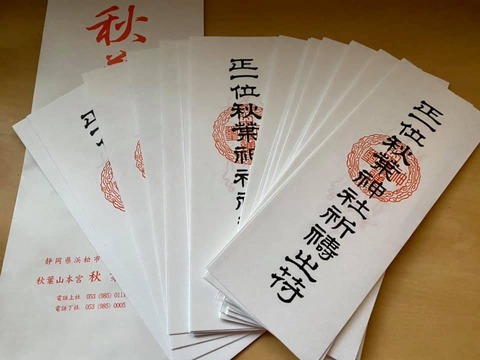 正一位秋葉神社祈禱之符
正一位秋葉神社祈
秋
静岡県浜松市
秋葉山本宮 秋
電話上社 053 (985) 011
電話下社 053 (985) 0005